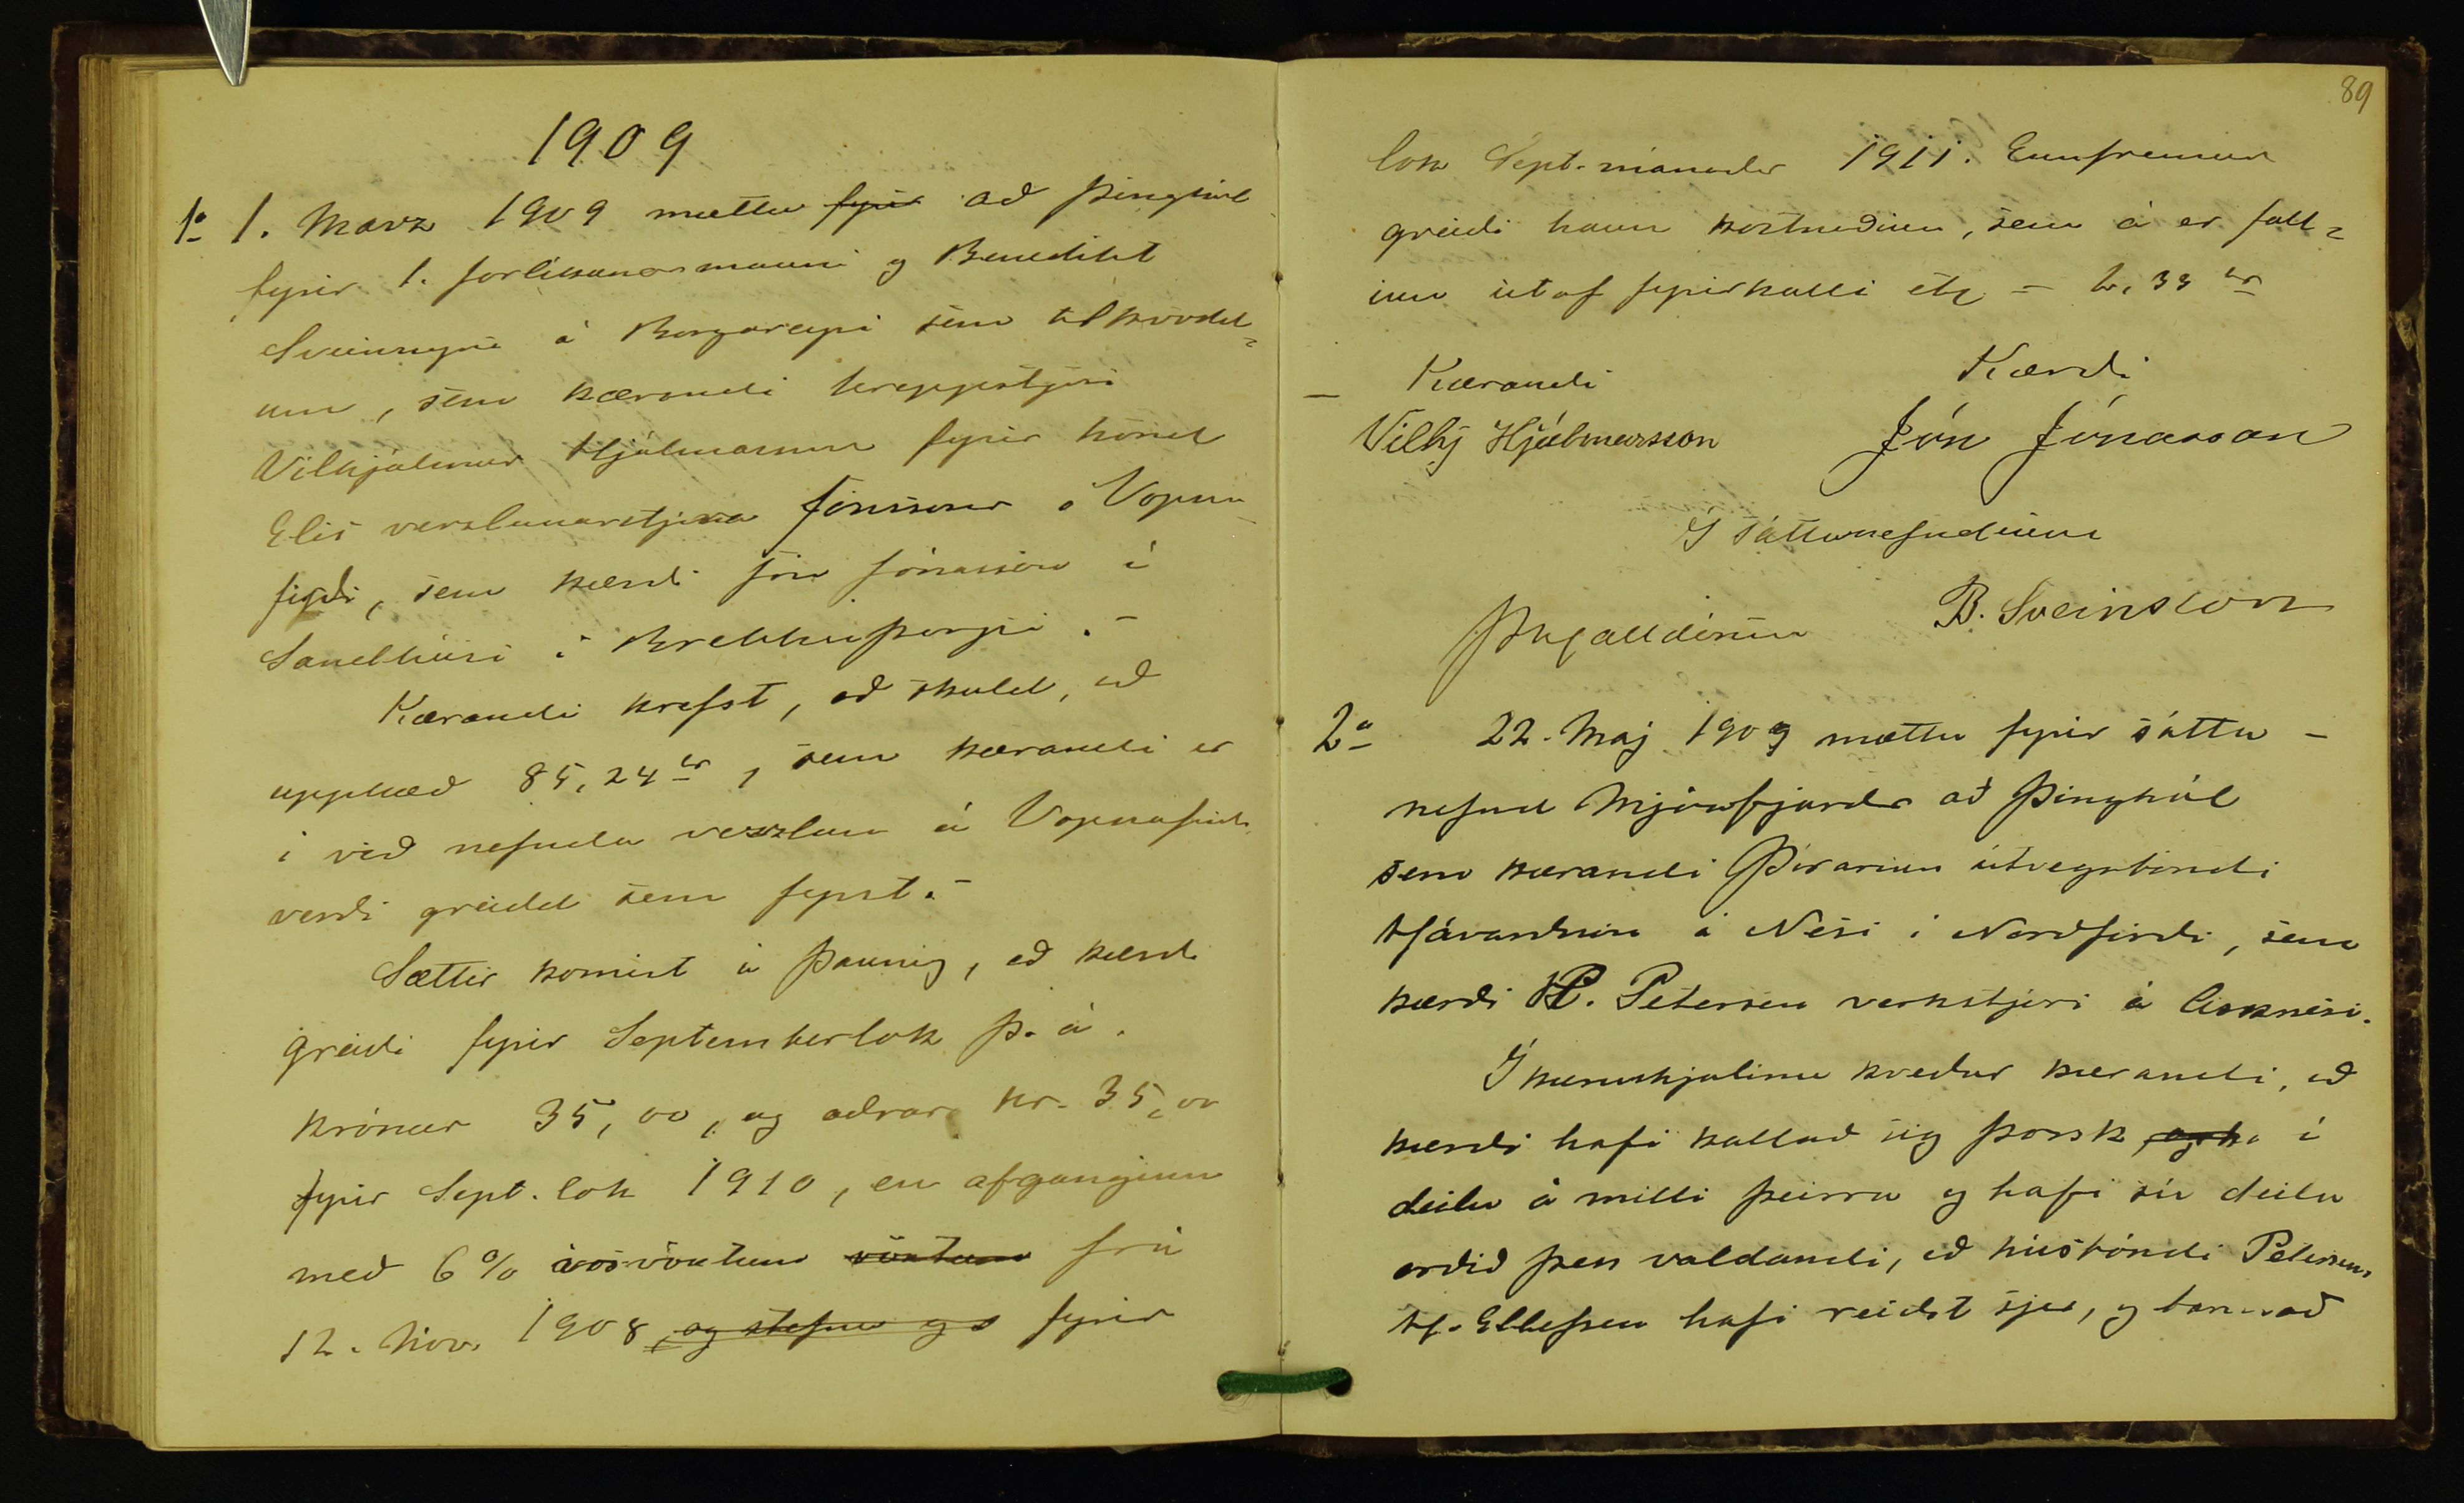 1909
1o 1. Marz 1909 mættu fyrir að Þinghól
fyrir 1. forlíkunarmanni og Benedikt
Sveinssyni á Borgareyri sem tilkvödd=
um, sem kærandi hreppstjóri
Vilhjálmur Hjálmarsson fyrir hönd
Elis verslunarstjóra Jónssonar á Vopna-
firði, sem kærdi Jón Jónasson í
Sandhúsi í Brekkuþorpi.-
Kærandi krefst, að skuld, að
upphæð 85,24 kr, sem kærandi er
í við nefnda verzlun á Vopnafirði
verði greidd sem fyrst.-
Sættir komist á þannig, að kærdi
greiði fyrir Septemberlok þ. á.
krónur 35,00, og aðrar kr. 35,00
fyrir Sept. lok 1910, en afganginn
með 6% ársvöxtum vöxtum frá
12. Nóv. 1908, og stefnu fyrir
89
lok Sept. mánaðar 1911. Ennfremur
greiði hann kostnaðinn, sem á er fall=
inn útaf fyrirkalli etc = 2,33 kr
Kærandi Kærdi
Vilhj Hjálmarsson Jón Jónasson
Í sáttanefndinni
B. Sveinsson
2o 22. Maj 1909 mættu fyrir sátta-
nefnd Mjóafjarðar að Þinghól
sem kærandi Þórarinn útvegsbóndi
Hávarðsson á Nesi í Norðfirði, sem
kærdi P. Petersen verkstjóri á Asknesi.
Í kæruskjalinu kveður kærandi, að
kærdi hafi kallað sig þorsk í
deilu á milli þeirra og hafi sú deila
orðið þess valdandi, að húsbóndi Petersens
H. Ellefsen hafi reiðst sjer, og bannað